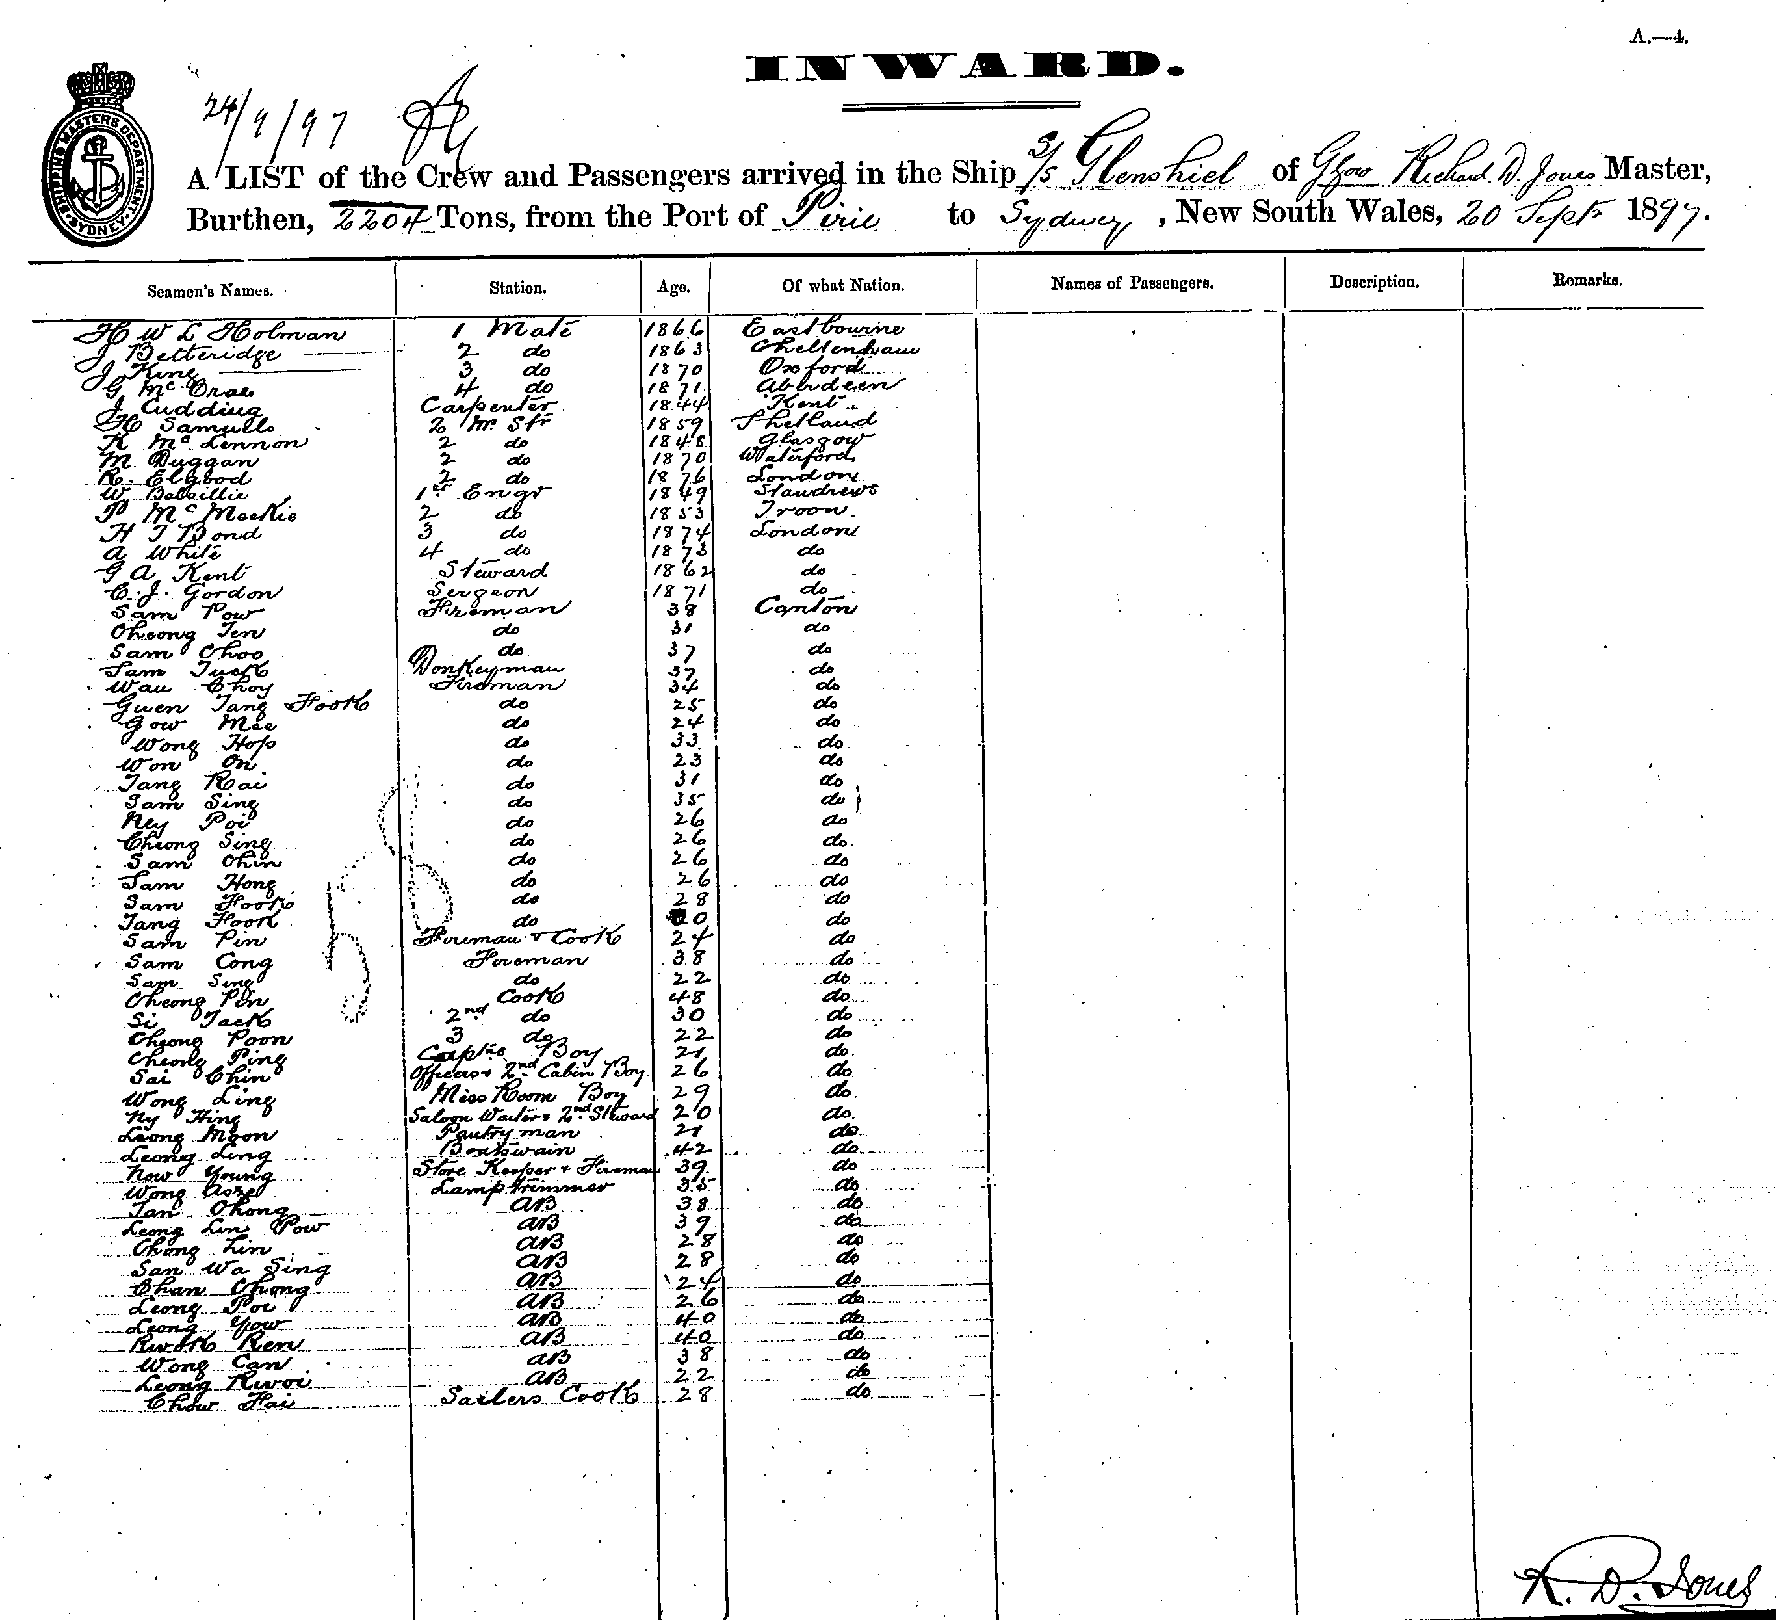 A.—4.
INWARD.
24/9/97
SHIPPING MASTERS DEPARTMENT SYDNEY
A LIST of the Crew and Passengers arrived in the Ship S/S Glenshiel of Ggow Richard D. Jones Master,
Burthen, 2204 Tons, from the Port of Pirie to Sydney, New South Wales, 20 Sept 1897.
Seamen's Names. Station. Age. Of what Nation. Names of Passengers. Description. Remarks.
H W L Holman 1 Mate 1866 Eastbourne
J Betteridge 2 do 1863 Cheltenham
J King 3 do 1870 Oxford
G McCrae 4 do 1871 Aberdeen
J Cudding Carpenter 1844 Kent
H Samuels 2 Mr Str 1859 Shetland
K McLennon 2 do 1848 Glasgow
M Duggan 2 do 1870 Waterford
R. Elgbod 2 do 1876 London
W Balsillie 1st Engr 1849 St andrews
P McMeekie 2 do 1853 Troon.
H T Bond 3 do 1874 London
A White 4 do 1873 do
G A Kent Steward 1862 do
C. J. Gordon Sergeon 1871 do
Sam Pow Fireman 38 Canton
Cheong Ten do 31 do
Sam Choo do 37 do
Sam Tuck Donkeyman 37 do
Wau Choy Fireman 34 do
Guen Tang Fook do 25 do
Gow Mee do 24 do
Wong Hop do 33 do
Won On do 23 do
Tang Kai do 31 do
Sam Sing do 35 do
Ney Poi do 26 do
Cheong Sing do 26 do.
Sam Chin do 26 do
Sam Hong do 26 do
Sam Fook do 28 do
Tang Fook do do
Sam Pin Fireman & Cook 24 do
Sam Cong Fireman 38 do
Sam Sing do 22 do
Cheong Pin Cook 48 do
Si Tack 2nd do 30 do
Cheong Poon 3 do 22 do
Cheong Ping Capts Boy 21 do
Sai Chin Officers & 2nd Cabin Boy 26 do
Wong Ling Mess Room Boy 29 do
Ny Hing Saloon Waiter & 2nd Steward 20 do.
Leong Moon Pantryman 21 do
Leong Ling Boatswain 42 do
Now Young Store Keeper & Fireman 39 do
Wong Lamptrimmer 35 do
Tan Chong AB 38 do
Leong Lin Pow AB 39 do
Chong Lin AB 28 do
San Wa Sing AB 28 do
Chan Chong AB 24 do
Leong Poi AB 26 do
Leong Yow AB 40 do
Kwok Ken AB 40 do
Wong Can AB 38 do
Leong Kwoi AB 22 do
Chow Fai Sailers Cook 28 do
R. D. Jones